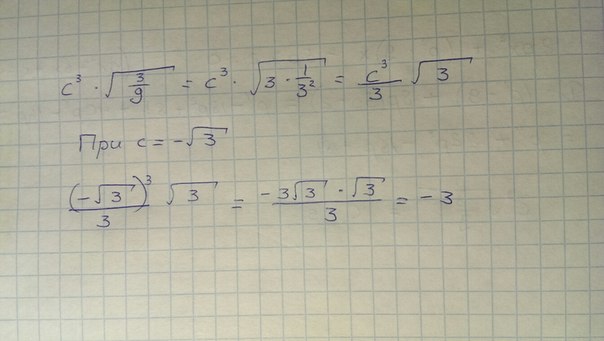 c³ · √(3/9) = c³ · √(3 · 1/3²) = c³/3 √3
При c = -√3
(-√3)³/3 √3 = -3√3 · √3/3 = -3